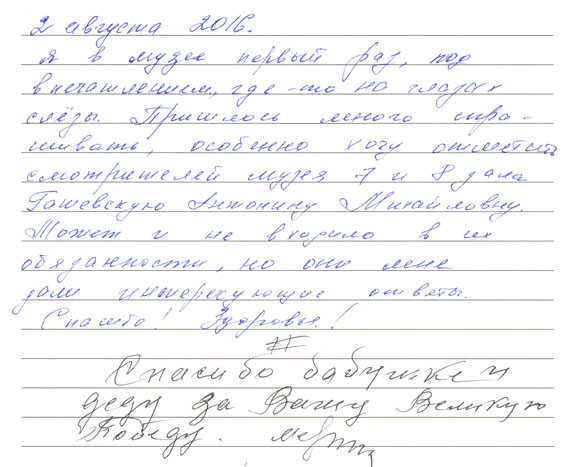 2 августа 2016.
Я в музее первый раз, под
впечатлением, где-то на глазах
слёзы. Пришлось много спра-
шивать, особенно хочу отметить
смотрителей музея 7 и 8 зала
Гашевскую Антонину Михайловну.
Может и не входило в их
обязанности, но они мне
дали интересующие ответы.
Спасибо! Здоровья!
#
Спасибо бабушке и
деду за Вашу Великую
Победу.